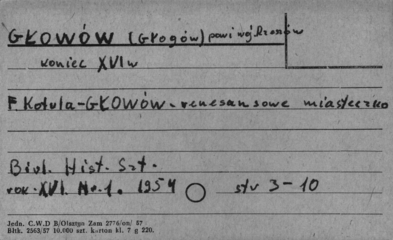 GŁOWÓW (Głogów) pow. 
koniec XVI w
F. Kotula - GŁOWÓW - renesansowe miasteczko
Biul. Hist. Szt.
rok. XVI. Nr. 1. 1954 str 3-10
Jedn. C.W.D B/Olsztyn Zam 2776/on/ 57
Bltk. 2563/57 10.000 szt. karton kl. 7 g 220.